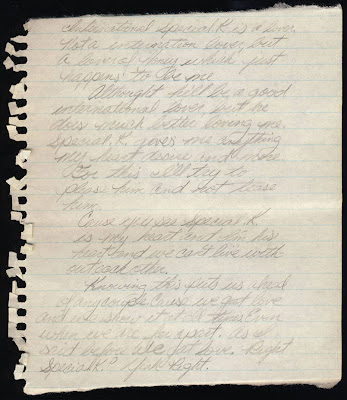 International Special K is a lover.
Not a internation lover, but
a lover of honey which just
happens to be me.
Althought he'll be a good
international lover, but he
does much better loving me.
Special K. gives me anything
my heart desire and more.
For this I'll try to
please him and not tease
him.
Cause you see Special K
is my heart and I'm his
heart and we can't live with
out each other.
Knowing this puts us ahead
of any couple Cause we got love
and we show it at all times Even
when we are far apart. As I
said before we got love. Right
Special K? Yeah Right.